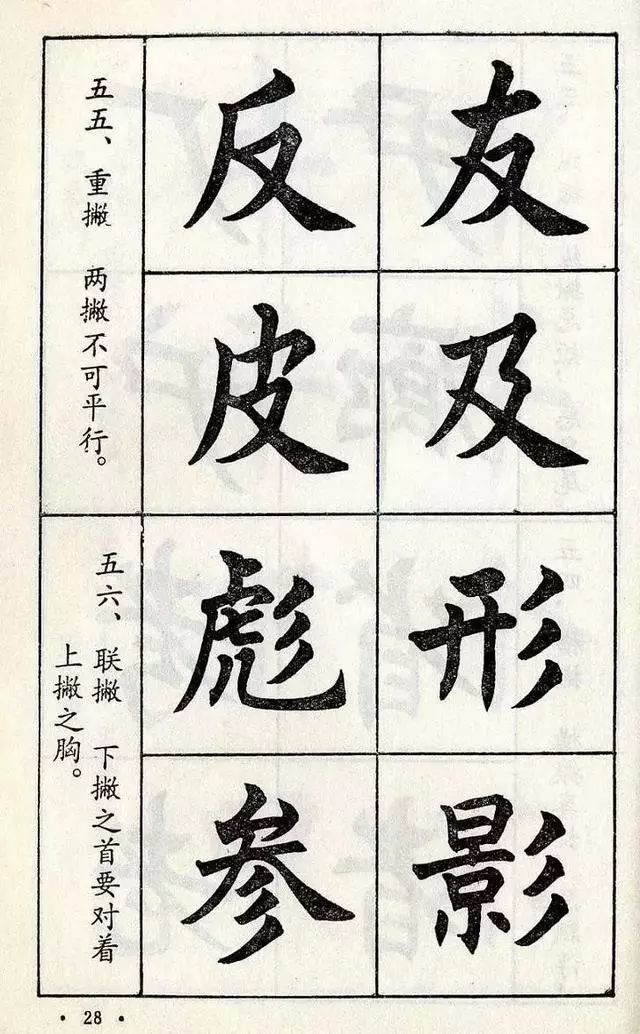 五五、重撇 两撇不可平行。
友反
及皮
五六、联撇 下撇之首要对着
上撇之胸。
形彪
影参
· 28 ·